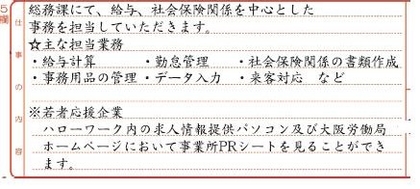 5
欄
仕事の内容
総務課にて、給与、社会保険関係を中心とした
事務を担当していただきます。
☆主な担当業務
・給与計算　・勤怠管理　・社会保険関係の書類作成
・事務用品の管理・データ入力　・来客対応　など
※若者応援企業
ハローワーク内の求人情報提供パソコン及び大阪労働局
ホームページにおいて事業所PRシートを見ることができ
ます。